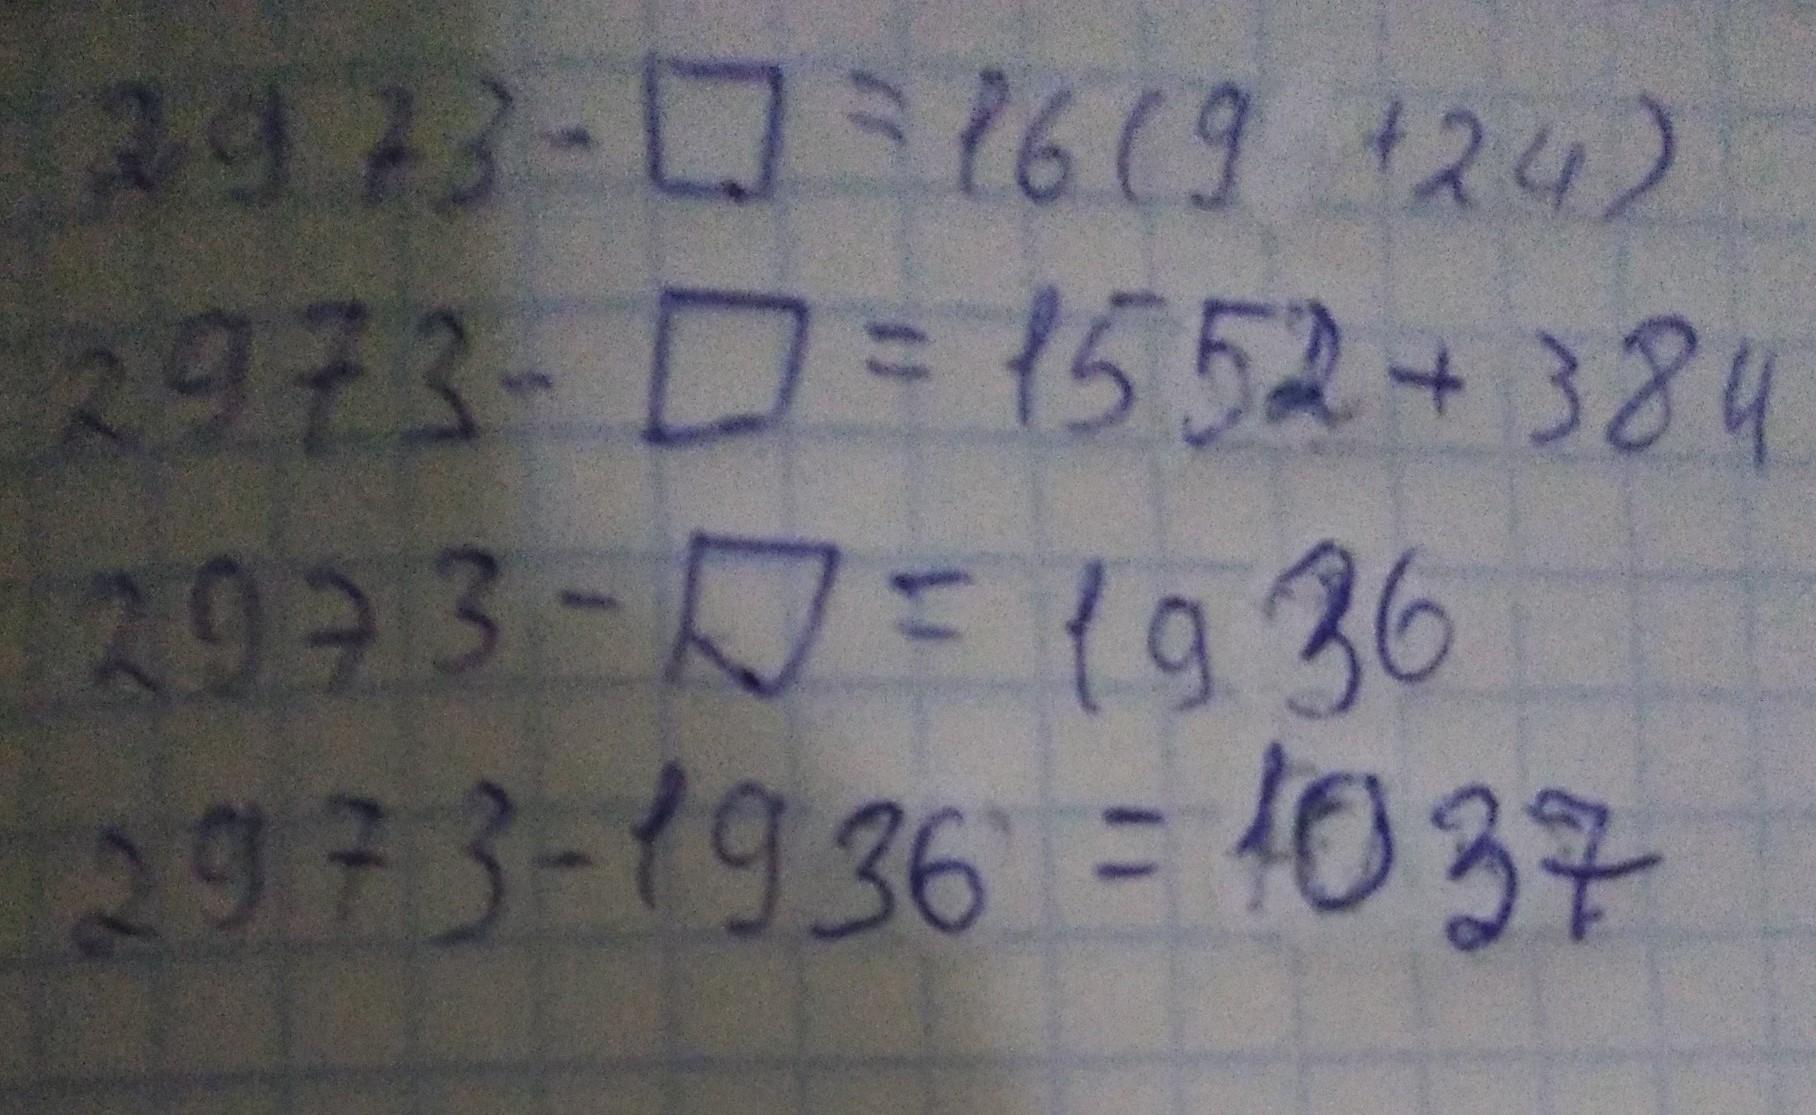 2973 - □ = 16(9 +24)
2973 - □ = 1552 + 384
2973 - □ = 1936
2973 - 1936 = 1037